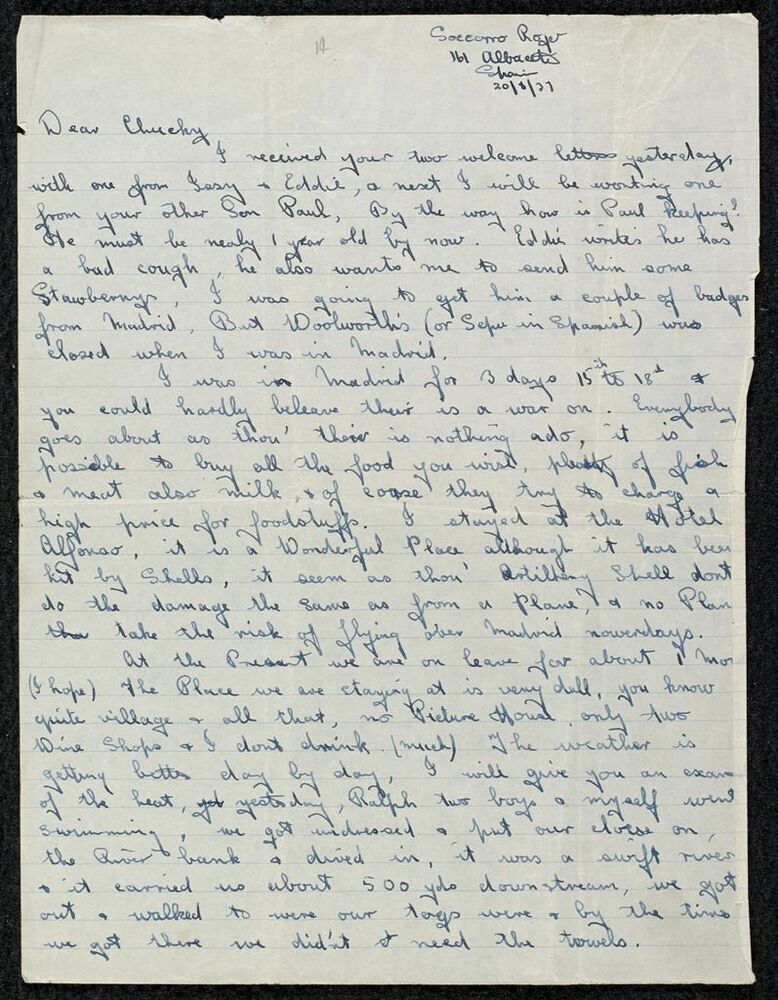 14
Soccorro Rojo
161 Albacete
Spain
20/8/37
Dear Chucky
I received your two welcome letters yesterday,
with one from Issy & Eddie, a next I will be wonting one
from your other Son Paul, By the way how is Paul keeping?
He must be nealy 1 year old by now. Eddie writes he has
a bad cough, he also wants me to send him some
Stawberrys, I was going to get him a couple of badges
from Madrid, But Woolworths (or Sepu in Spanish) was
closed when I was in Madrid.
I was in Madrid for 3 days 15th to 18th &
you could hardly beleave their is a war on. Everybody
goes about as thou' their is nothing ado, it is
possible to buy all the food you wist, plenty of fish
& meat also milk, & of coarse they try to charge a
high price for foodstuffs. I stayed at the Hotel
Alfonso, it is a Wonderful Place although it has been
hit by Shells, it seem as thou' Artilhery Shell dont
do the damage the same as from a Plane, & no Plan
take the risk of flying over Madrid nowerdays.
At the Present we are on leave for about 1 Mo
(I hope) The Place we are staying at is very dull, you know
quite village & all that, no Picture House, only two
Wine Shops & I dont drink. (much) The weather is
getting better day by day, I will give you an exam
of the heat, yesterday, Ralph two boys & myself went
swimming, we got undressed & put our cloese on,
the River bank & dived in, it was a swift river
& it carried us about 500 yds downstream, we got
out & walked to were our togs were & by the time
we got there we did'nt need the towels.